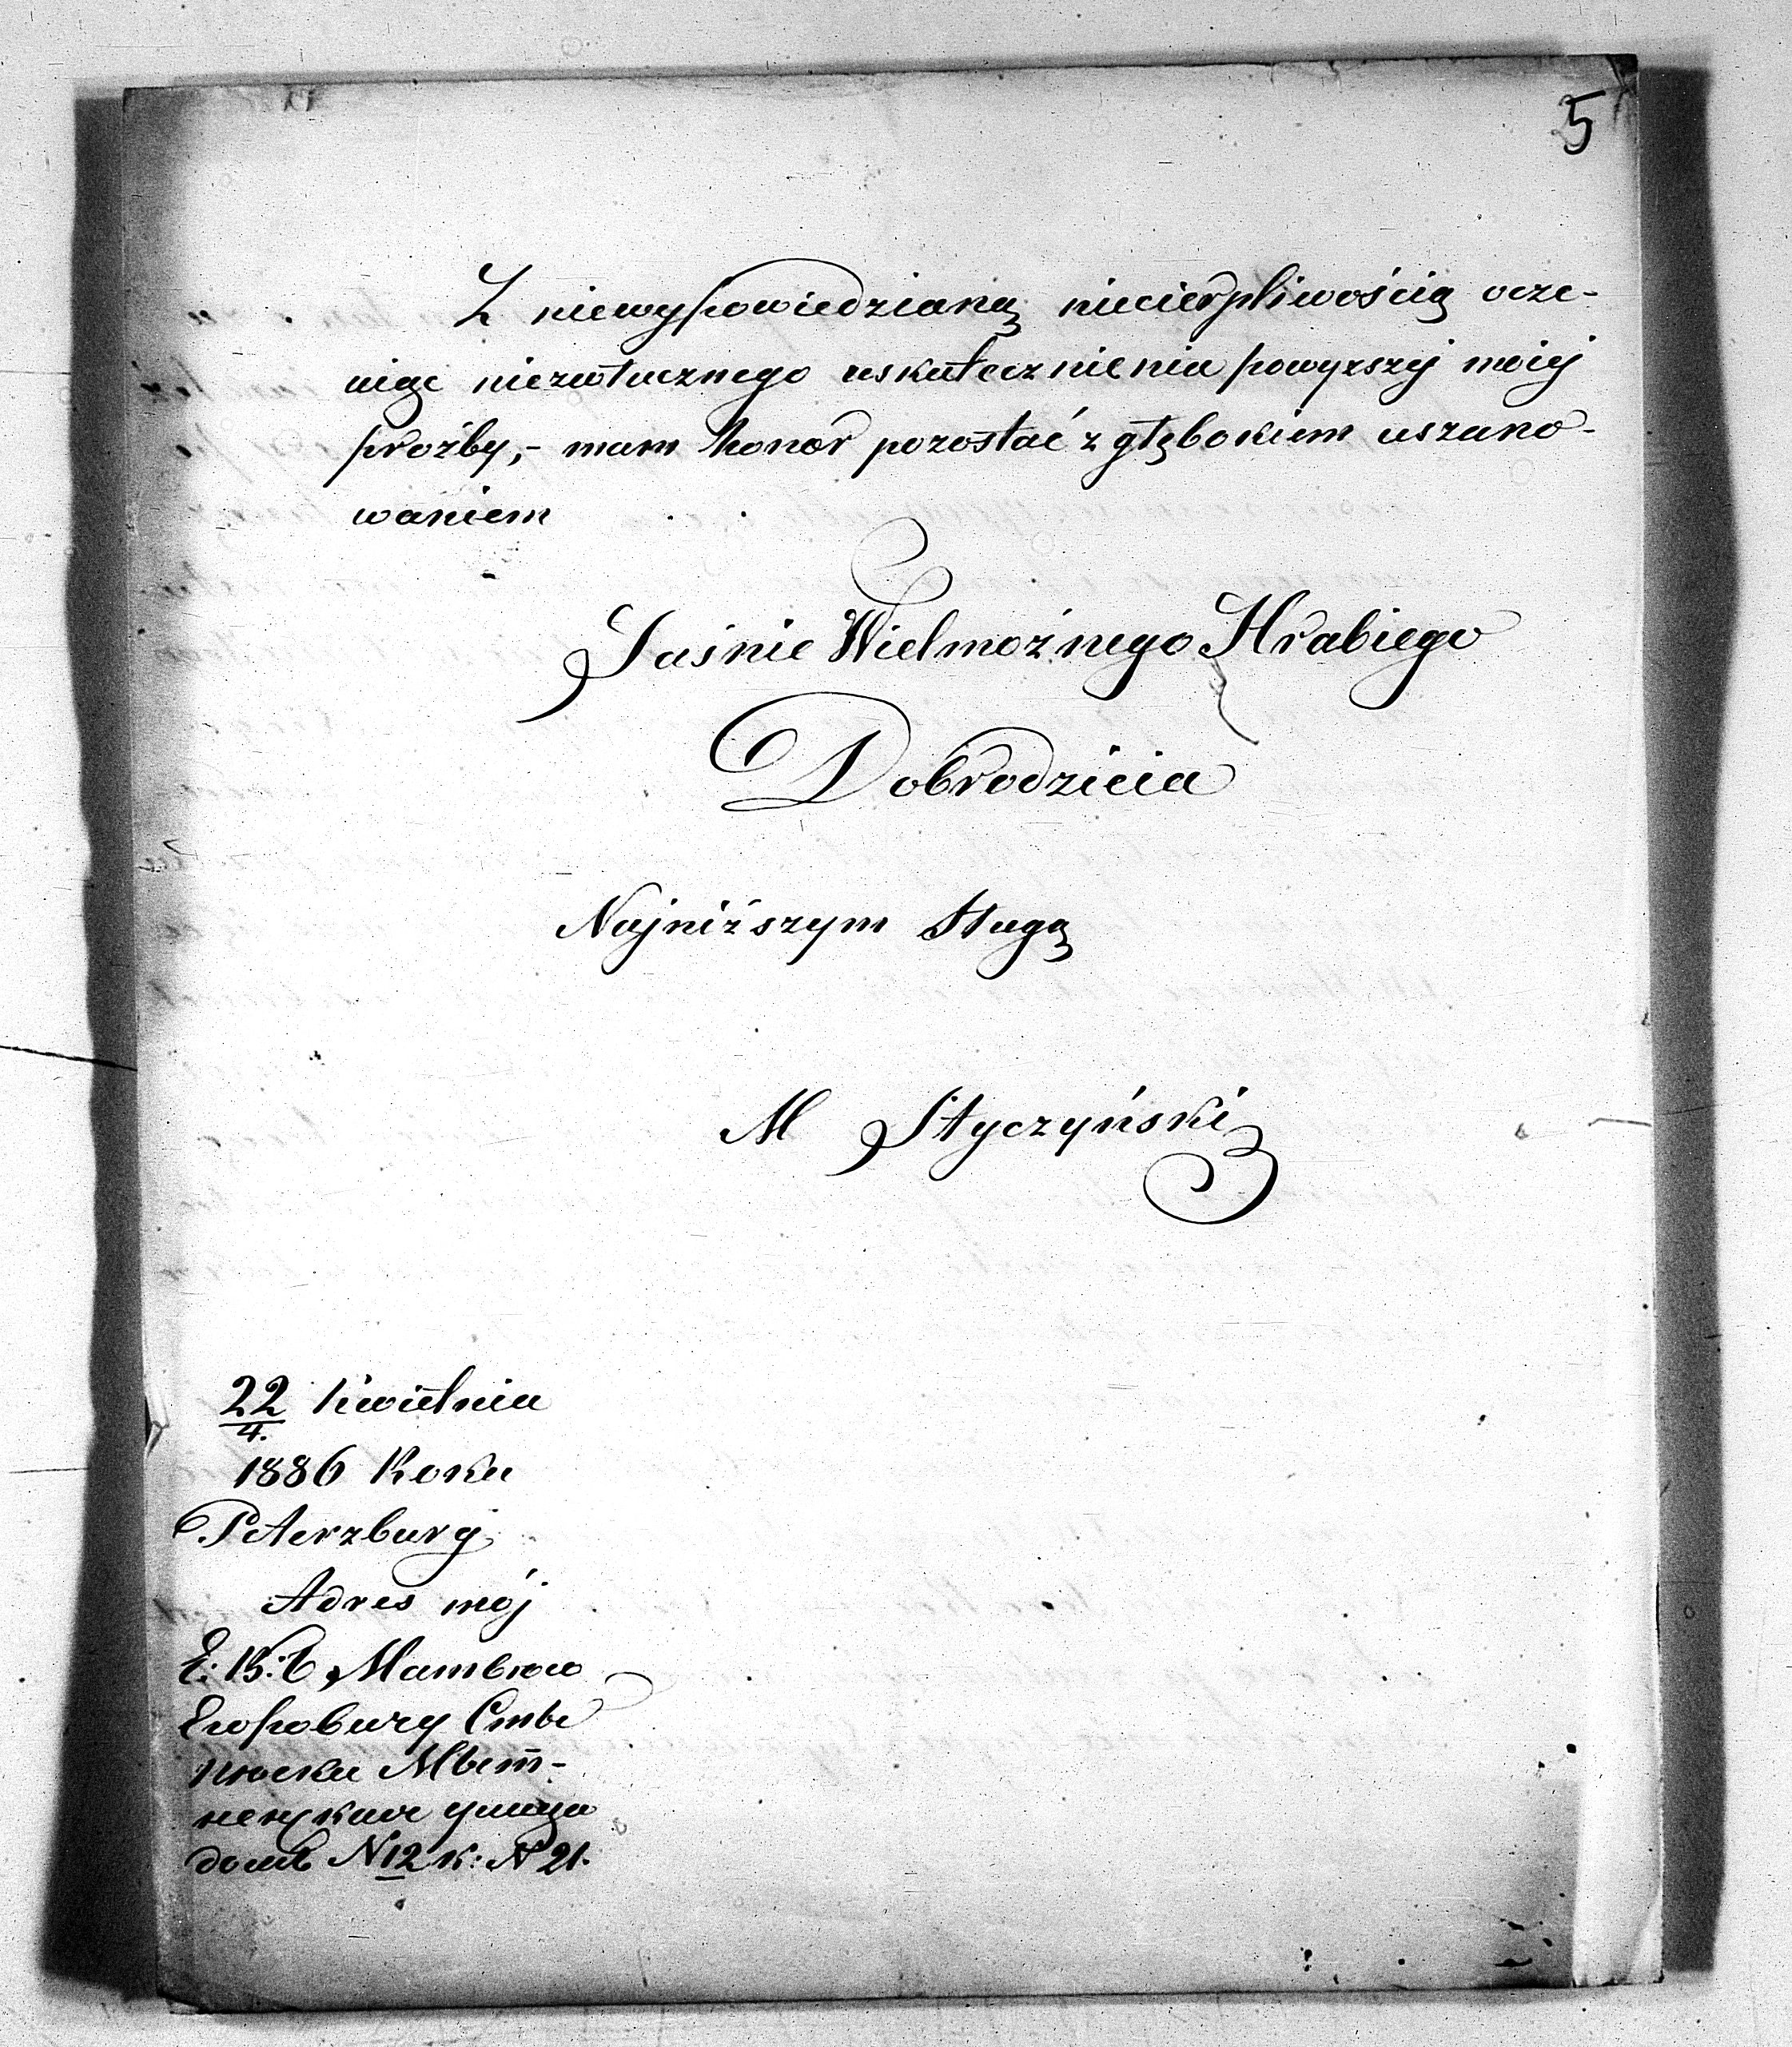 5
Z niewypowiedzianą niecierpliwością ocze-
uiąc niezwłucznego uskutecznienia powyzszej mojej
proźby,- mam honor pozostać z głębokiem uszano-
waniem
Jaśnie Wielmoźnego Hrabiego
Dobrodzieia
Najniźszym Sługą
M Styczyński
22/4. Kwietnia
1886 Roku
Peterzburg
Adres mój
Е: В: Б
домъ N 12 к: N 21.